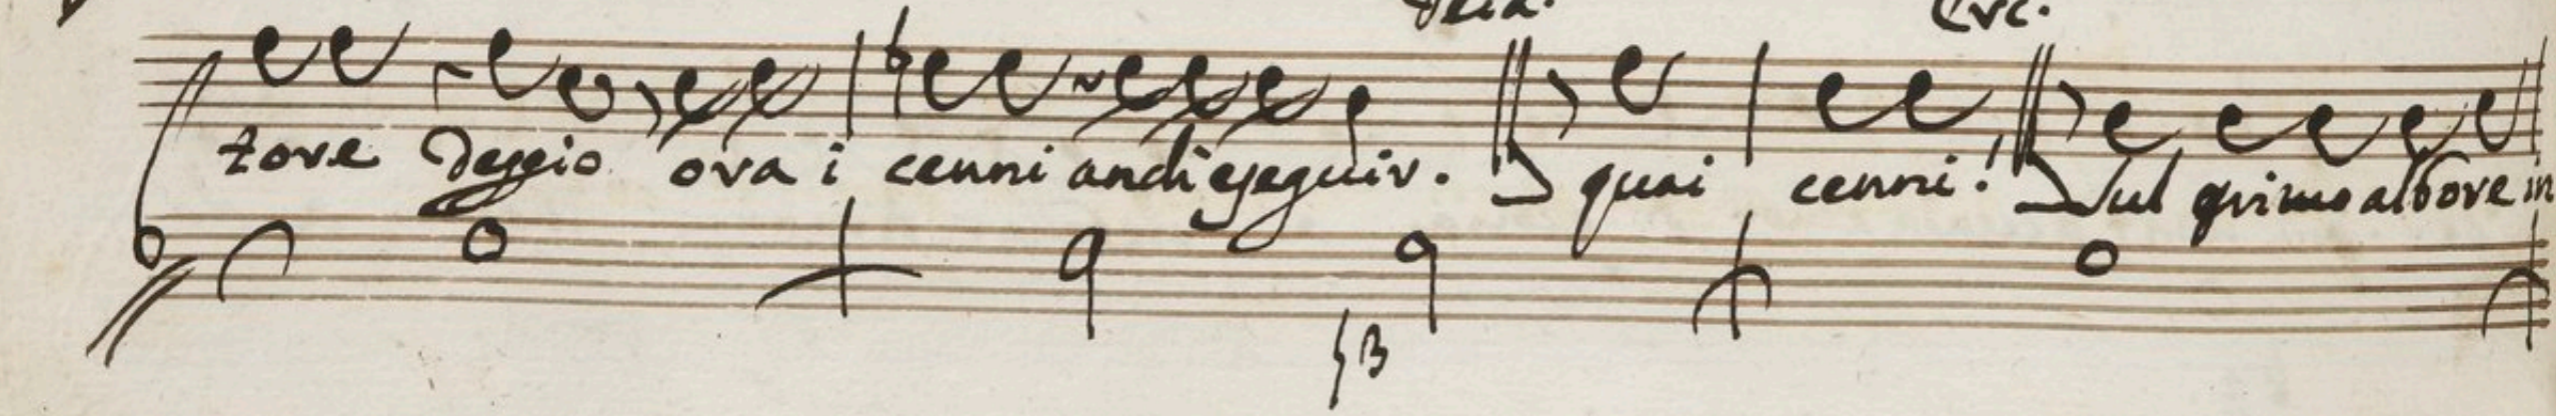 Delia. Erc.
tore deggio ora i cenni andi eseguir. quai cenni! Sul primo albore in